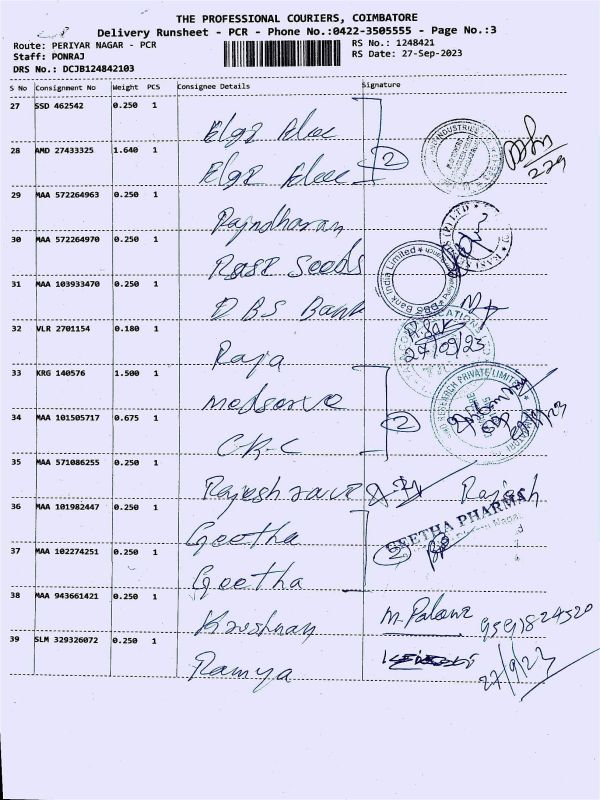 THE PROFESSIONAL COURIERS, COIMBATORE
Delivery Runsheet - PCR - Phone No.:0422-3505555 - Page No.:3
Route: PERIYAR NAGAR - PCR
RS No.: 1248421
Staff: PONRAJ
RS Date: 27-Sep-2023
DRS No.: DCJB124842103
S No Consignment No Weight PCS Consignee Details Signature
27 SSD 462542 0.250 1
Elgi Elec
28 AMD 27433325 1.640 1
Elgi Elec
2
INDUSTRIES
29 MAA 572264963 0.250 1
Rajndharan
30 MAA 572264970 0.250 1
Rasi Seeds
(P) LTD
31 MAA 103933470 0.250 1
DBS Bank
DBS Bank India Limited
32 VLR 2701154 0.180 1
Raja
27/09/23
33 KRG 140576 1.500 1
Medserve
34 MAA 101505717 0.675 1
CRC
2
RESEARCH PRIVATE LIMITED
35 MAA 571086255 0.250 1
Rajesh
Rajesh
36 MAA 101982447 0.250 1
Geetha
GEETHA PHARMA
37 MAA 102274251 0.250 1
2
Geetha
38 MAA 943661421 0.250 1
Krishnan
39 SLM 329326072 0.250 1
Ramya
27/9/23